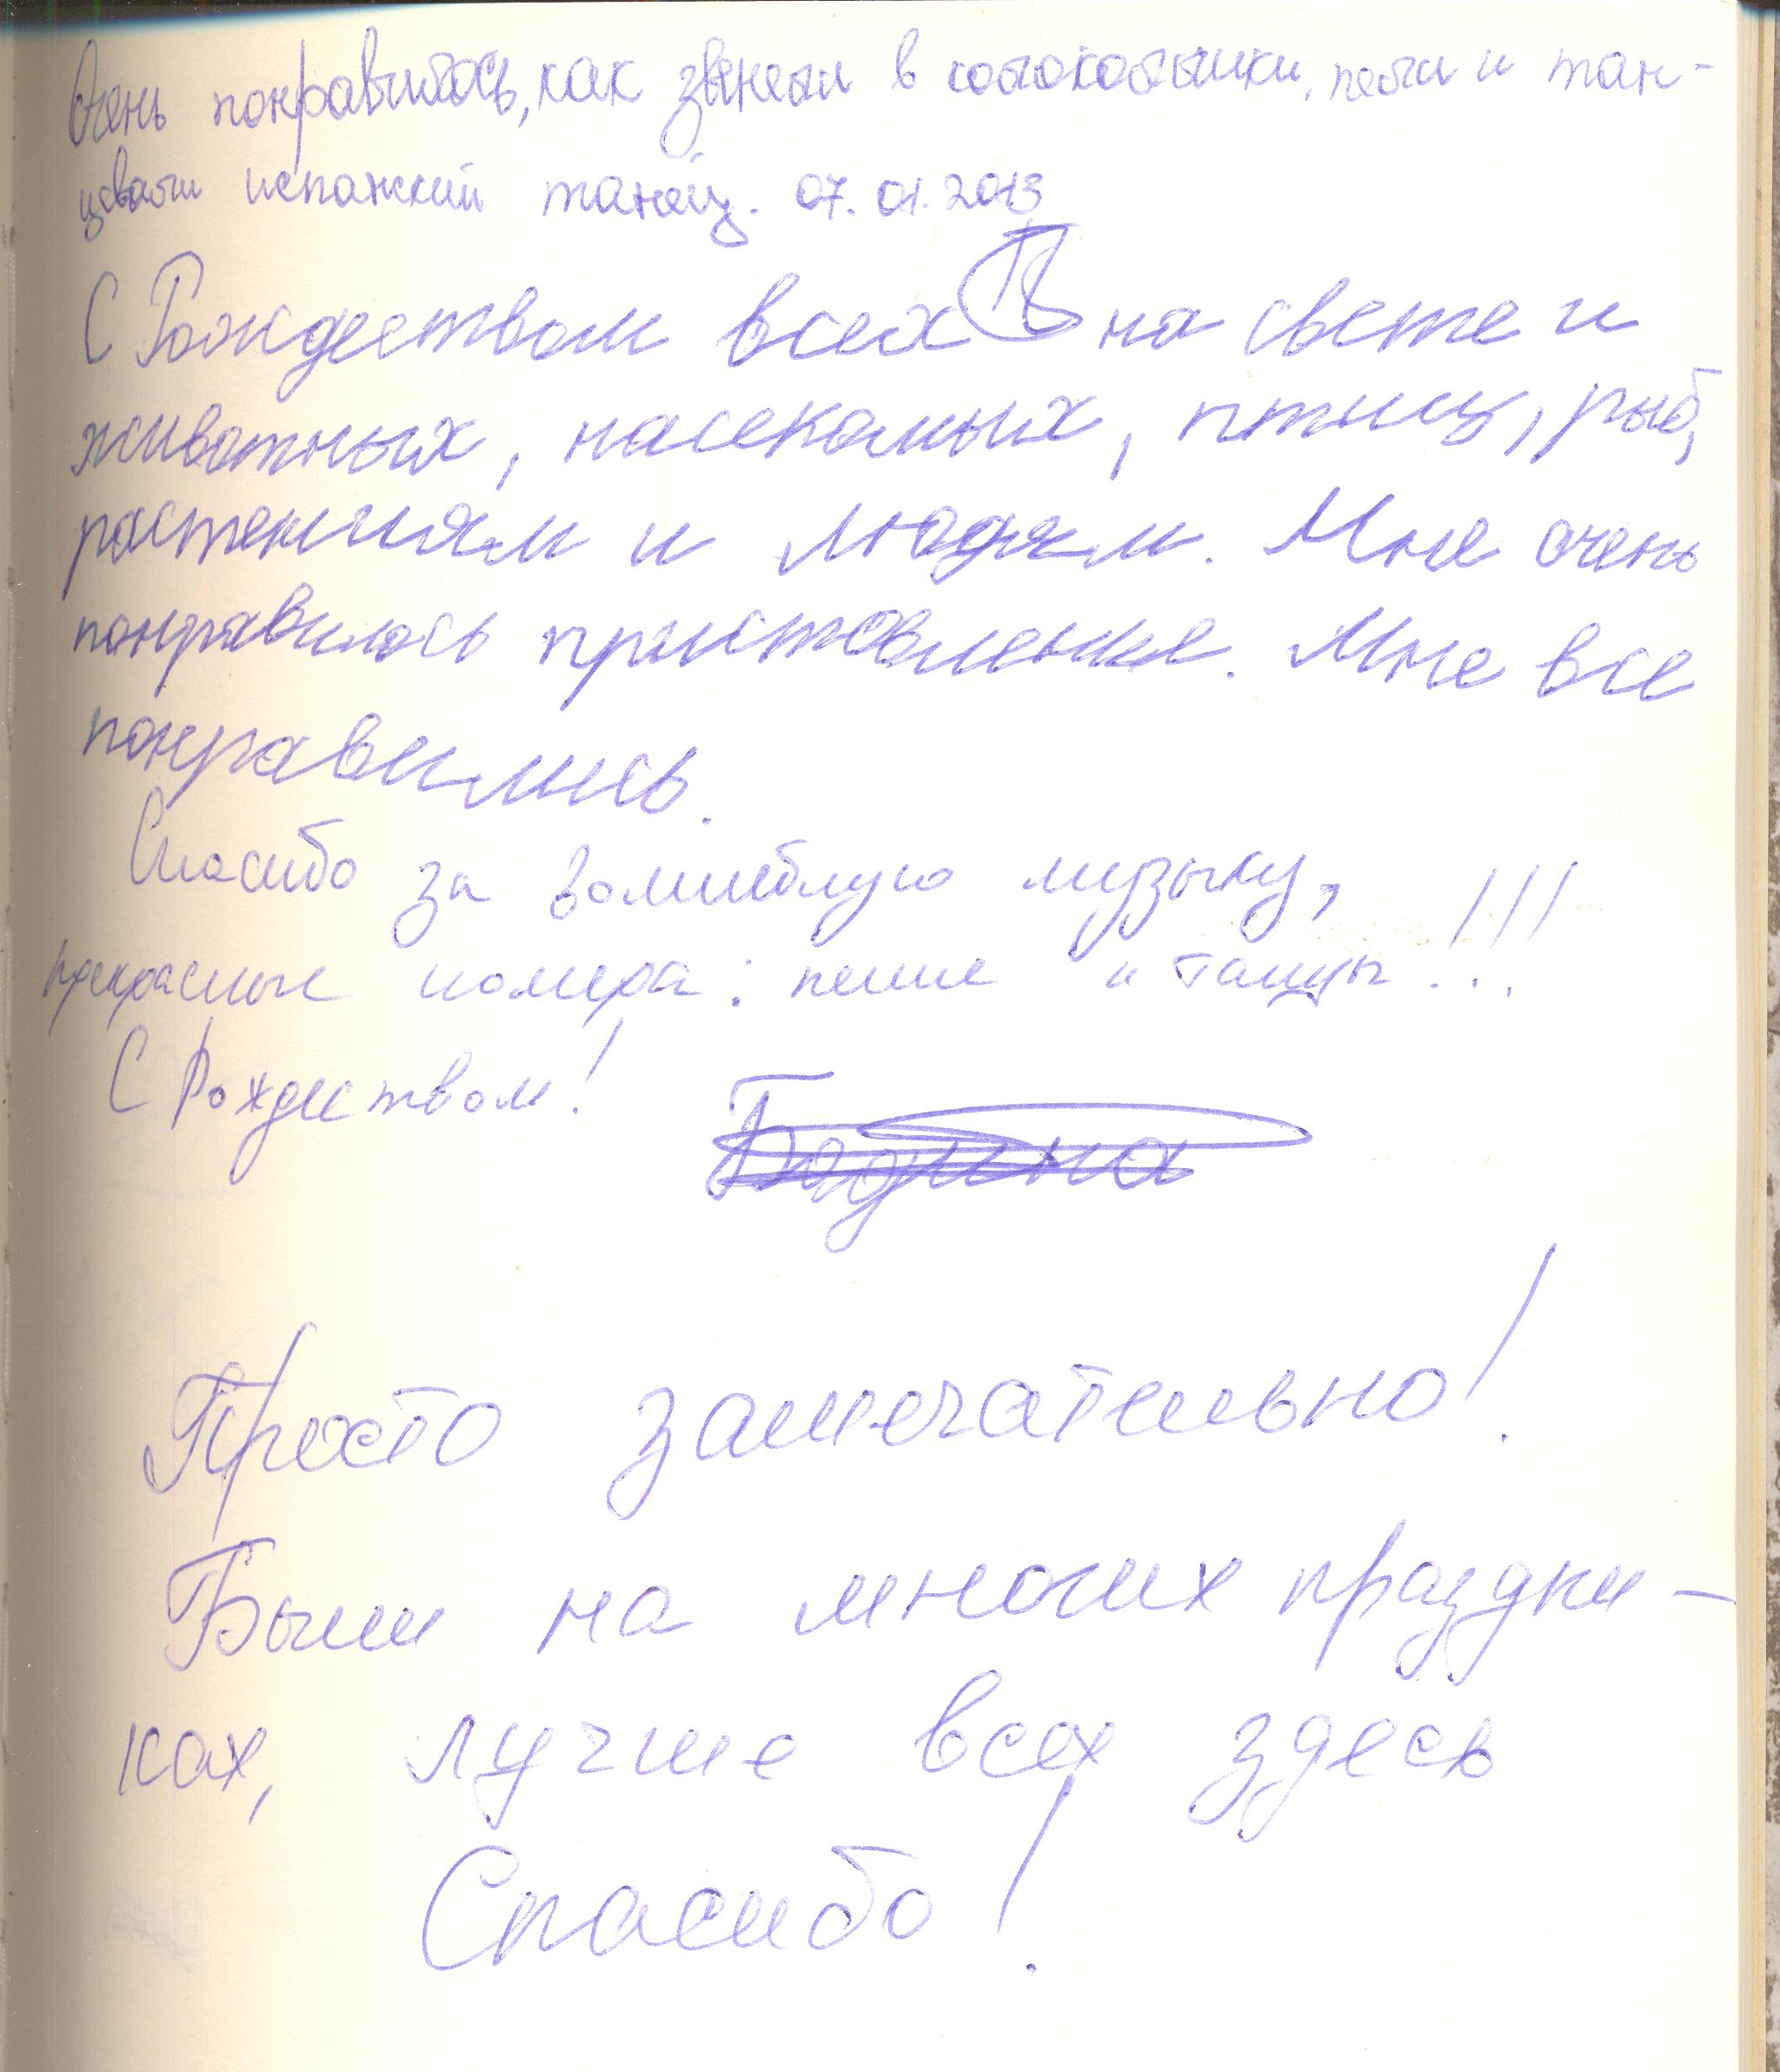 Очень понравилось, как звенели в колокольчики, пели и тан-
цевали испанский танец. 07.01.2013
С Рождеством всех на свете и
животных, насекомых, птиц, рыб,
растениям и людям. Мне очень
понравилось приставление. Мне все
понравились.
Спасибо за волшебную музыку,
прекрасные номера: пение и танцы!!!
С Рождеством!
Просто замечательно!
Были на многих праздни-
ках, лучше всех здесь
Спасибо!